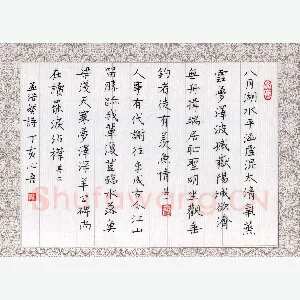 八月湖水平涵虛混太清氣蒸
雲夢澤波撼嶽陽城欲濟
無舟楫端居恥聖明坐觀垂
釣者徒有羨魚情
人事有代謝往來成古今江山
留勝跡我輩復登臨水落魚
梁淺天寒夢澤深羊公碑尚
在讀罷淚沾襟
孟浩然詩 丁亥
Shufawang.CN